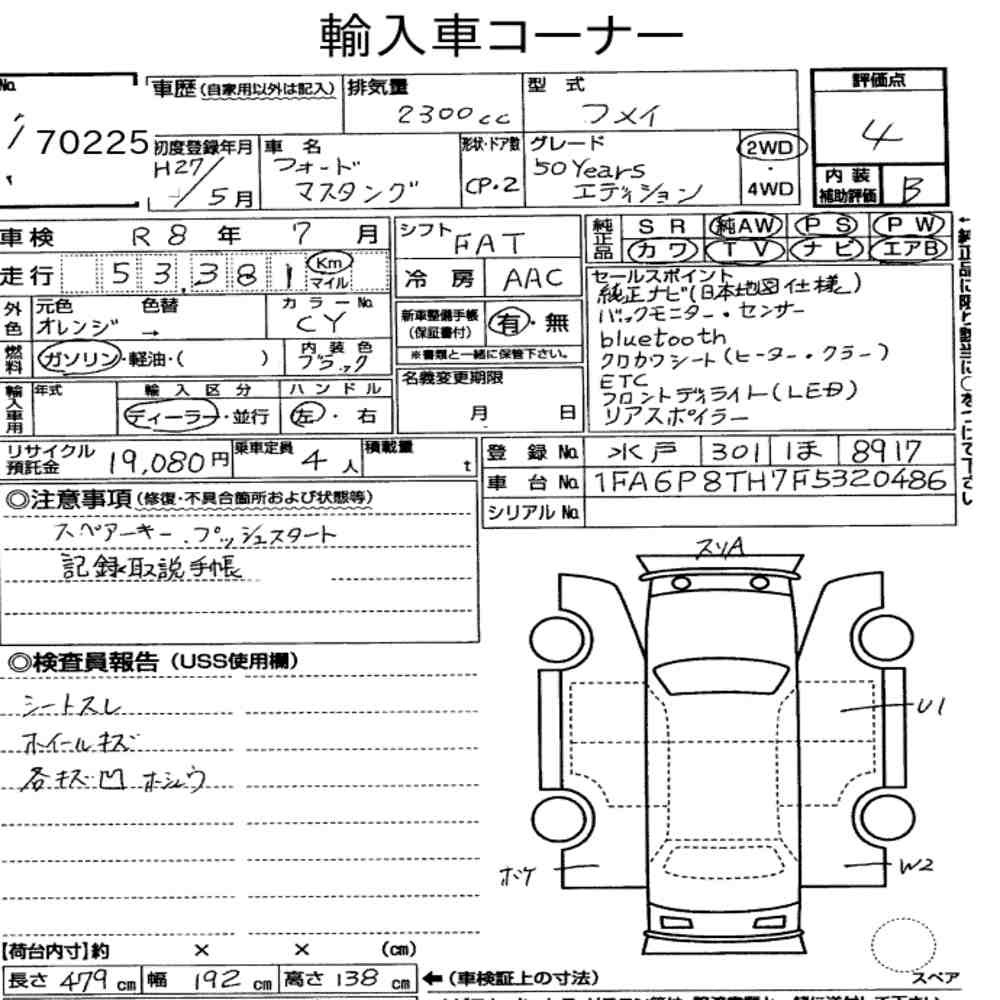 輸入車コーナー
No
70225
車歴(自家用以外は記入)
排気量
2300cc
型 式
フメイ
評価点
4
内装補助評価
B
初度登録年月
H27/5月
車 名
フォード
マスタング
形状・ドア数
CP・2
グレード
50Years
エディション
2WD
・
4WD
車検 R8年 7月
走行 53,381 Km マイル
シフト FAT
冷房 AAC
純正品 SR 純AW PS PW
カワ TV ナビ エアB
外色
元色 色替
オレンジ →
カラーNo.
CY
燃料
ガソリン・軽油・( )
内装色
ブラック
新車整備手帳
(保証書付)
有・無
※書類と一緒に保管下さい。
セールスポイント
純正ナビ(日本地図仕様)
バックモニター・センサー
bluetooth
クロカワシート(ヒーター・クラー)
ETC
フロントディライト(LED)
リアスポイラー
輸入車用
年式
輸入区分
ディーラー・並行
ハンドル
左・右
名義変更期限
月 日
リサイクル預託金 19,080円
乗車定員 4人
積載量 t
登録No. 水戸 301 ほ 8917
車台No. 1FA6P8TH7F5320486
シリアルNo.
◎注意事項(修復・不具合箇所および状態等)
スペアーキー.プッシュスタート
記録 取説 手帳
スリA
◎検査員報告(USS使用欄)
シートスレ
ホイールキズ
各キズ凹 ホシュウ
U1
ボケ
W2
【荷台内寸】約 × × (cm)
長さ 479cm 幅 192cm 高さ 138cm ←(車検証上の寸法)
スペア